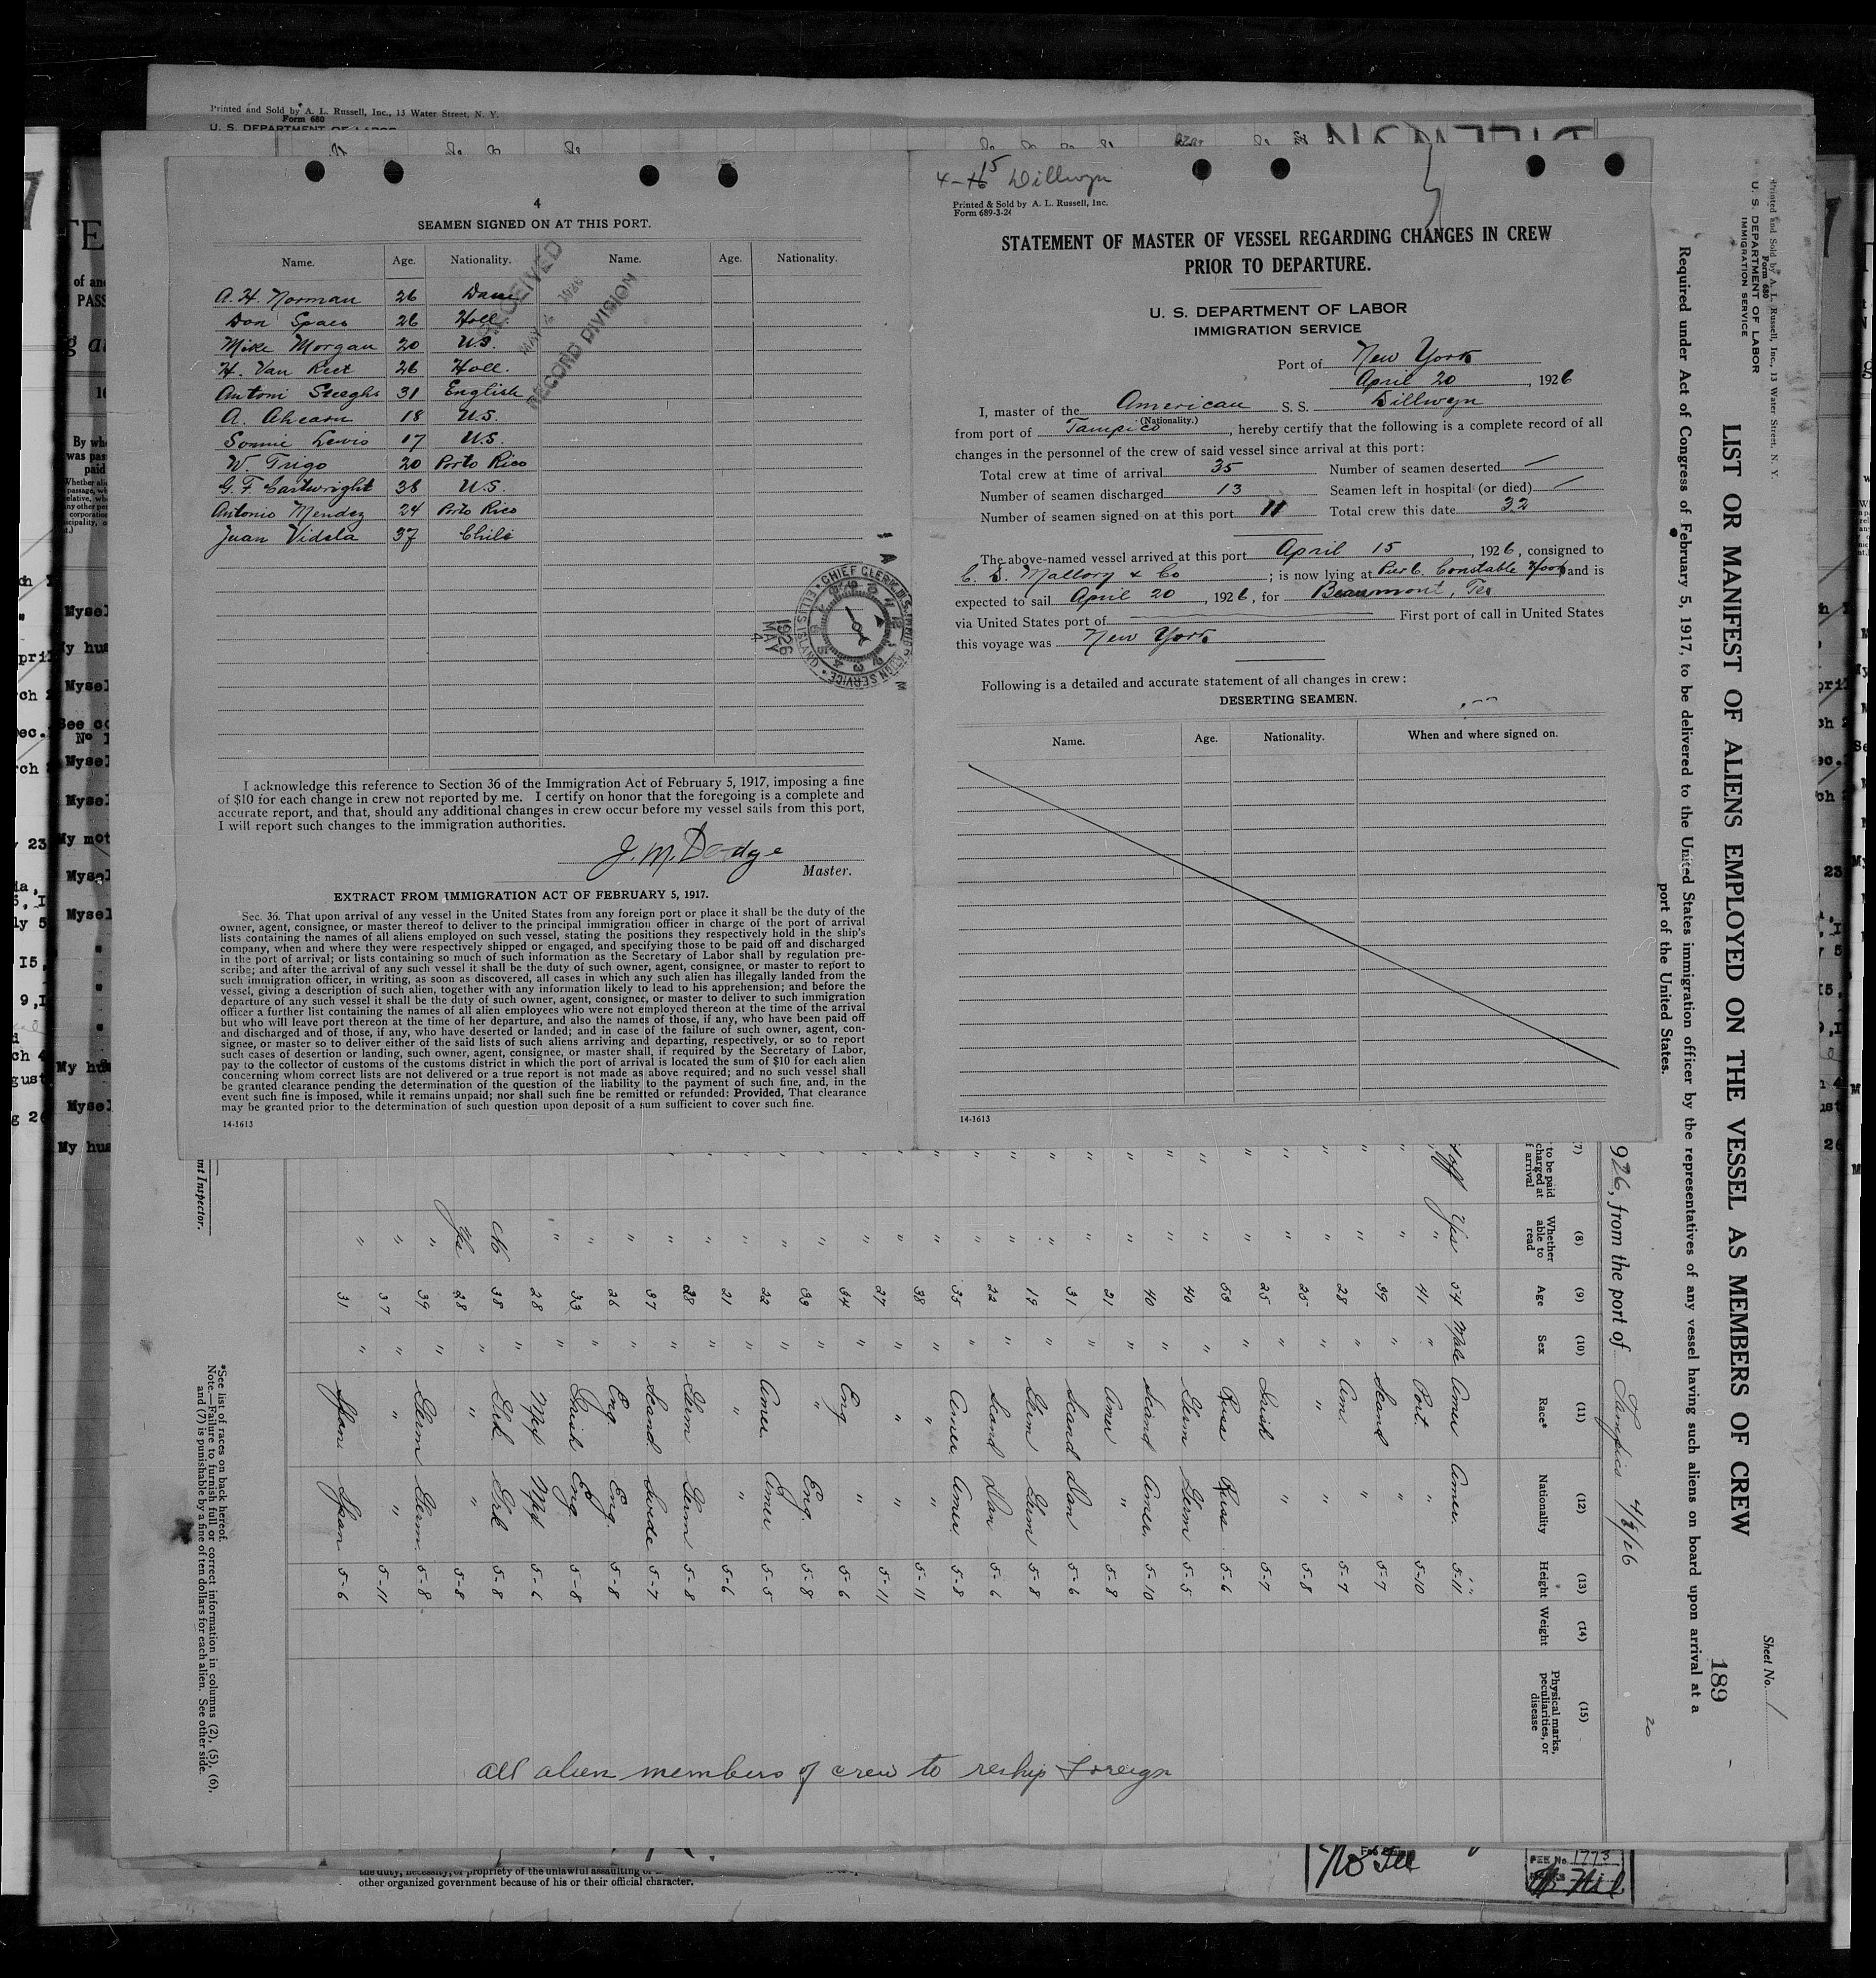 Printed and Sold by A. L. Russell, Inc., 13 Water Street, N. Y.
Form 680
U. S. DEPARTMENT OF LABOR
4
SEAMEN SIGNED ON AT THIS PORT.
Name. Age. Nationality. Name. Age. Nationality.
A. H. Norman 26 Dane
Don Spaes 26 Holl.
Mike Morgan 20 U.S.
H. Van Reet 26 Holl.
Antoni Steeghs 31 English
A. Ahearn 18 U.S.
Sonnie Lewis 17 U.S.
W. Trigo 20 Porto Rico
G. F. Cartwright 38 U.S
Antonio Mendez 24 Porto Rico
Juan Videla 37 Chile
RECEIVED
MAY 4 1926
RECORD DIVISION
CHIEF CLERK U.S. IMMIGRATION SERVICE ELLIS ISL'D N.Y.
1926
MAY
4
I acknowledge this reference to Section 36 of the Immigration Act of February 5, 1917, imposing a fine
of $10 for each change in crew not reported by me. I certify on honor that the foregoing is a complete and
accurate report, and that, should any additional changes in crew occur before my vessel sails from this port,
I will report such changes to the immigration authorities.
J. M. Dodge
Master.
EXTRACT FROM IMMIGRATION ACT OF FEBRUARY 5, 1917.
Sec. 36. That upon arrival of any vessel in the United States from any foreign port or place it shall be the duty of the
owner, agent, consignee, or master thereof to deliver to the principal immigration officer in charge of the port of arrival
lists containing the names of all aliens employed on such vessel, stating the positions they respectively hold in the ship's
company, when and where they were respectively shipped or engaged, and specifying those to be paid off and discharged
in the port of arrival; or lists containing so much of such information as the Secretary of Labor shall by regulation pre-
scribe; and after the arrival of any such vessel it shall be the duty of such owner, agent, consignee, or master to report to
such immigration officer, in writing, as soon as discovered, all cases in which any such alien has illegally landed from the
vessel, giving a description of such alien, together with any information likely to lead to his apprehension; and before the
departure of any such vessel it shall be the duty of such owner, agent, consignee, or master to deliver to such immigration
officer a further list containing the names of all alien employees who were not employed thereon at the time of the arrival
but who will leave port thereon at the time of her departure, and also the names of those, if any, who have been paid off
and discharged and of those, if any, who have deserted or landed; and in case of the failure of such owner, agent, con-
signee, or master so to deliver either of the said lists of such aliens arriving and departing, respectively, or so to report
such cases of desertion or landing, such owner, agent, consignee, or master shall, if required by the Secretary of Labor,
pay to the collector of customs of the customs district in which the port of arrival is located the sum of $10 for each alien
concerning whom correct lists are not delivered or a true report is not made as above required; and no such vessel shall
be granted clearance pending the determination of the question of the liability to the payment of such fine, and, in the
event such fine is imposed, while it remains unpaid; nor shall such fine be remitted or refunded: Provided, That clearance
may be granted prior to the determination of such question upon deposit of a sum sufficient to cover such fine.
14-1613
4-15 Dillwyn
Printed & Sold by A. L. Russell, Inc.
Form 689-3-24
STATEMENT OF MASTER OF VESSEL REGARDING CHANGES IN CREW
PRIOR TO DEPARTURE.
U. S. DEPARTMENT OF LABOR
IMMIGRATION SERVICE
Port of New York
April 20, 1926
I, master of the American S. S. Dillwyn
(Nationality.)
from port of Tampico, hereby certify that the following is a complete record of all
changes in the personnel of the crew of said vessel since arrival at this port:
Total crew at time of arrival 35 Number of seamen deserted —
Number of seamen discharged 13 Seamen left in hospital (or died) —
Number of seamen signed on at this port 11 Total crew this date 32
The above-named vessel arrived at this port April 15, 1926, consigned to
C. D. Mallory & Co; is now lying at Pier 6. Constable Hook and is
expected to sail April 20, 1926, for Beaumont, Tex
via United States port of First port of call in United States
this voyage was New York
Following is a detailed and accurate statement of all changes in crew:
DESERTING SEAMEN.
Name. Age. Nationality. When and where signed on.
14-1613
Printed and Sold by A. L. Russell, Inc., 13 Water Street, N. Y.
Form 680
U. S. DEPARTMENT OF LABOR
IMMIGRATION SERVICE
Sheet No. 1
189
LIST OR MANIFEST OF ALIENS EMPLOYED ON THE VESSEL AS MEMBERS OF CREW
Required under Act of Congress of February 5, 1917, to be delivered to the United States immigration officer by the representatives of any vessel having such aliens on board upon arrival at a
port of the United States.
20
926, from the port of Tampico 4/8/26
(7) (8) (9) (10) (11) (12) (13) (14) (15)
to be paid Whether able to read Age Sex Race* Nationality Height Weight Physical marks, peculiarities, or disease
off Yes 54 Male Amer Amer. 5-11
" " 41 " Port. " 5-10
" " 39 " Scand " 5-7
" " 28 " Am. " 5-9
" " 25 " " " 5-8
" " 25 " Irish " 5-7
" " 53 " Russ Russ 5-6
" " 40 " Germ Germ 5-5
" " 40 " Scand Amer. 5-10
" " 21 " Amer " 5-8
" " 31 " Scand Dan 5-6
" " 19 " Germ Germ 5-8
" " 22 " Scand Dan 5-6
" " 35 " Amer. Amer. 5-8
" " 38 " " " 5-11
" " 27 " " " 5-11
" " 34 " Eng " 5-6
" " 33 " " Eng. 5-8
" " 22 " Amer. Amer 5-5
" " 21 " " " 5-6
" " 28 " Germ Germ 5-8
" " 37 " Scand. Swede 5-7
" " 26 " Eng. Eng. 5-8
" " 33 " Irish Eng. 5-8
" " 28 " Mex Mex. 5-6
No 38 " Grk Grk 5-8
Yes 28 " " " 5-8
" 39 " Germ Germ 5-8
" 37 " " " 5-11
" 31 " Span Span 5-6
all alien members of crew to reship foreign
*See list of races on back hereof.
Note.—Failure to furnish full or correct information in columns (2), (5), (6),
and (7) is punishable by a fine of ten dollars for each alien. See other side.
nt Inspector.
other organized government because of his or their official character.
No Fee
FEE No. 1773